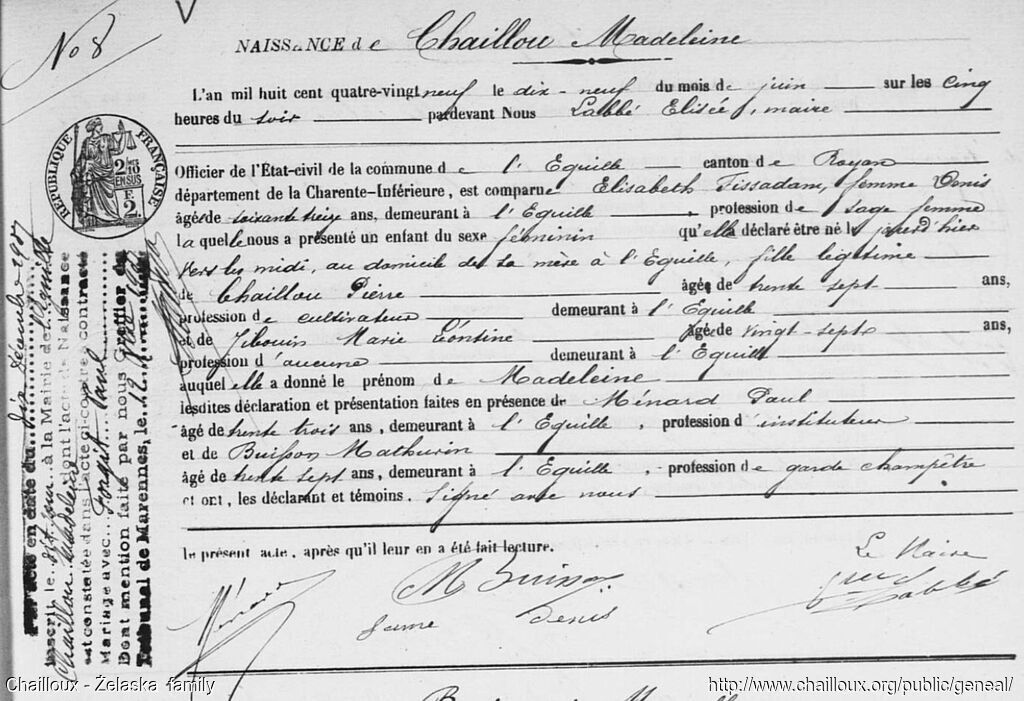 No 8
NAISSANCE de Chaillou Madeleine
L'an mil huit cent quatre-vingt neuf le dix-neuf du mois de juin sur les cinq
heures du soir pardevant Nous Labbé Elisée, maire
Officier de l'État-civil de la commune de l'Eguille canton de Royan
département de la Charente-Inférieure, est comparue Elisabeth Tissadam, femme Denis
âgée de soixante treize ans, demeurant à l'Eguille, profession de sage femme
laquelle nous a présenté un enfant du sexe féminin qu'elle déclaré être né le jourd'hier
vers les midi, au domicile de sa mère à l'Eguille, fille légitime
de Chaillou Pierre âgé de trente sept ans,
profession de cultivateur demeurant à l'Eguille
et de Jibouin Marie Léontine âgée de vingt-sept ans,
profession d'aucune demeurant à l'Eguille
auquel elle a donné le prénom de Madeleine
lesdites déclaration et présentation faites en présence de Ménard Paul
âgé de trente trois ans, demeurant à l'Eguille, profession d'instituteur
et de Buisson Mathurin
âgé de trente sept ans, demeurant à l'Eguille, profession de garde champêtre
et ont, les déclarant et témoins. Signé avec nous
le présent acte, après qu'il leur en a été fait lecture.
Le Maire
Ménard
M Buisson
Labbé
fame Denis
RÉPUBLIQUE FRANÇAISE
2/10
EN SUS
F.
2.
Par acte en date du dix décembre 1907
inscrit le sept juin à la Mairie de l'Eguille
Chaillou Madeleine dont l'acte de Naissance
est constatée dans l'acte ci-contre a contracté
Mariage avec Forgit Paul
Dont mention faite par nous Greffier du
Tribunal de Marennes, le 12
Chailloux - Żelaska family
http://www.chailloux.org/public/geneal/